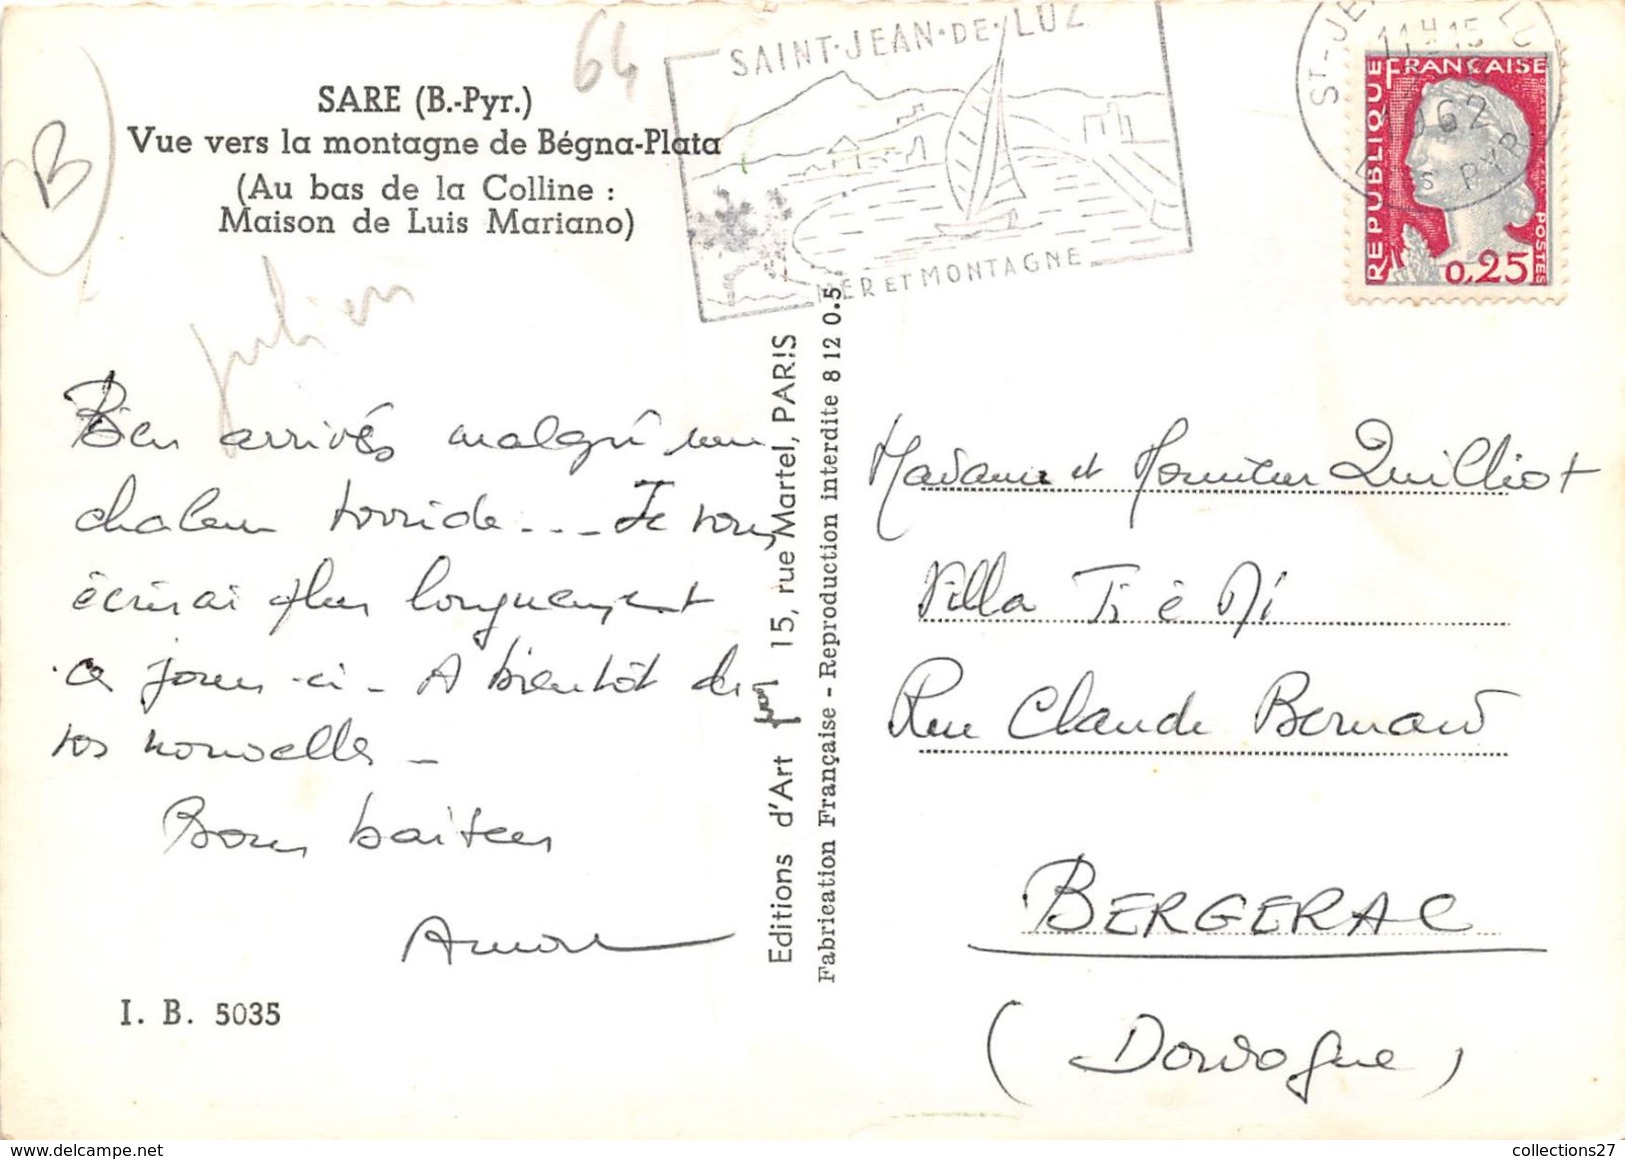 SARE (B.-Pyr.)
Vue vers la montagne de Bégna-Plata
(Au bas de la Colline :
Maison de Luis Mariano)
64
B
julien
SAINT-JEAN-DE-LUZ
MER ET MONTAGNE
11H15
PYR
REPUBLIQUE FRANÇAISE
POSTES
0,25
Bien arrivés malgré une
chaleur torride... Je vous
écrirai plus longuement
ces jours-ci - A bientôt de
vos nouvelles -
Bons baisers
I. B. 5035
Editions d'Art yvon 15, rue Martel, PARIS
Fabrication Française - Reproduction interdite 8 12 0.5
Madame et Monsieur Quilliot
Villa Ti é Mi
Rue Claude Bernard
BERGERAC
(Dordogne)
collections27